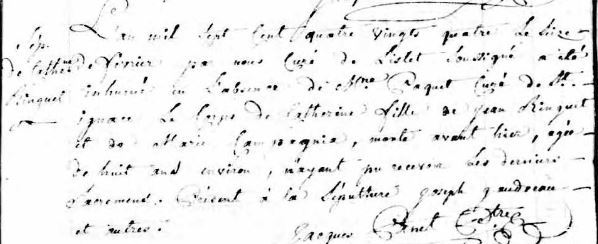 Sep. L'an mil Sept Cent quatre vingt quatre Le Seize
de Catherine de fevrier par nous Curé de Lislet Soussigné a été
Ringuet inhumée en L'absence de Mre Paquet Curé de St
ignace Le Corps de Catherine fille de Jean Ringuet
et de Marie morte avant hier, agée
de huit ans environ, n'ayant pu recevoir Les derniers
Sacremens. Présent à la Sépulture Joseph gaudreau
et autres.
Jacques Ptre